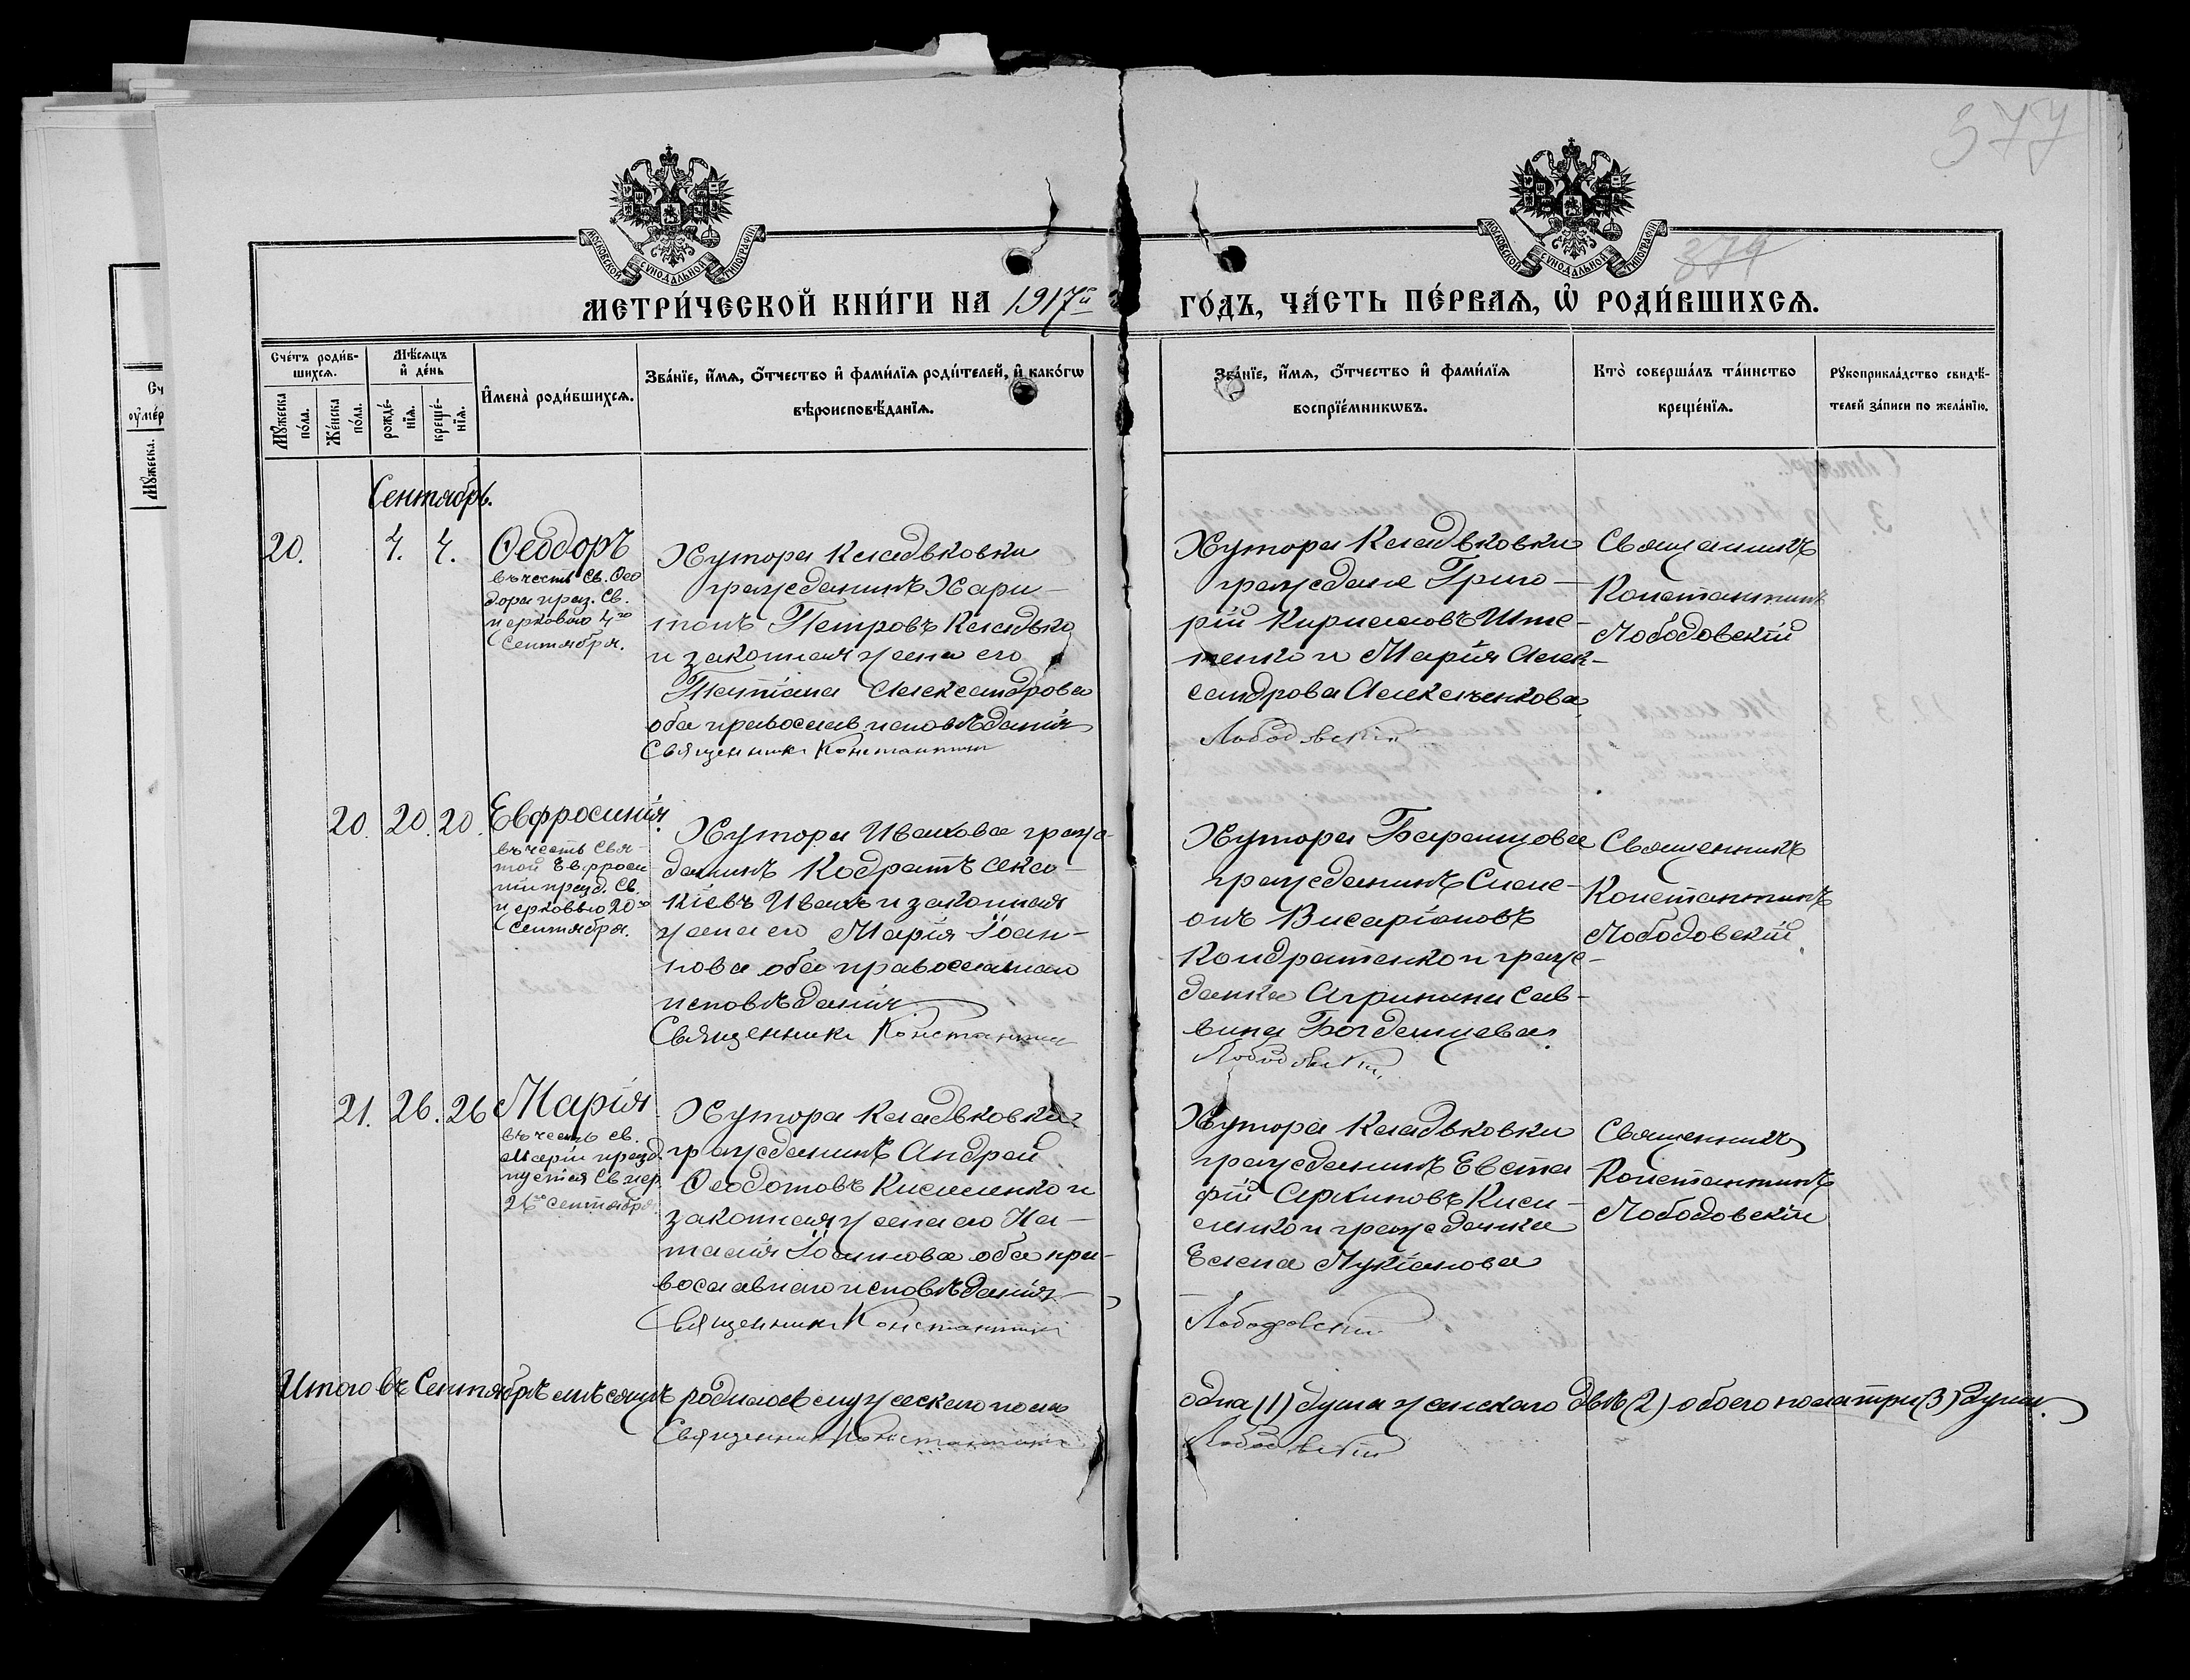 377
379
МОСКОВСКОЙ СѴНОДАЛЬНОЙ ТИПОГРАФІИ
МОСКОВСКОЙ СѴНОДАЛЬНОЙ ТИПОГРАФІИ
МЕТРИ́ЧЕСКОЙ КНИ́ГИ НА 1917й
ГО́ДЪ, ЧА́СТЬ ПЕ́РВАѦ, Ѡ҆ РОДИ́ВШИХСѦ.
Сче́тъ роди́в-
шихсѧ.
Мꙋ́жеска по́ла.
Же́нска по́ла.
Мѣ́сѧцъ
и҆ де́нь
рожде́-
нїѧ.
креще́-
нїѧ.
И҆мена̀ роди́вшихсѧ.
Зва́нїе, и҆́мѧ, ѻ҆́тчество и҆ фами́лїѧ роди́телей, и҆ како́гѡ
вѣроисповѣ́данїѧ.
Зва́нїе, и҆́мѧ, ѻ҆́тчество и҆ фами́лїѧ
воспрїе́мникѡвъ.
Кто̀ соверша́лъ та́инство
креще́нїѧ.
Рꙋкоприкла́дство свидѣ́-
телей за́писи по жела́нїю.
Сентябрь.
20. 4. 4. Ѳеодоръ
въ честь Св. Ѳео
дора праз. Св.
церковью 4го
Сентября.
Хутора Кладьковки
гражданинъ Хари-
тонъ Петровъ Кладько
и законная жена его
Татіана Александрова
оба православ исповѣданія
Священник Константин
Хутора Кладьковки
граждане Григо-
рій Кирилловъ Ште-
пенко и Марія Алек-
сандрова Алексѣенкова
Лободовскій
Священникъ
Константинъ
Лободовскій
20. 20. 20. Евфросинія.
въ честь Свя-
той Евфроси
ніи празд. Св.
церковью 20го
Сентября.
Хутора Ивахова граж-
данинъ Кодратъ
Ивахъ и законная
жена его Марія Іоан-
нова оба православнаго
исповѣданія
Священник Константин
Хутора Баранцова
гражданинъ Симе-
онъ Висаріоновъ
Кондратенко и граж-
данка Агрипина Сав-
вина Богданцева.
Лободовскій
Священникъ
Константинъ
Лободовскій.
21. 26. 26 Марія
въ честь св.
Маріи празд.
Св цер
26го сентября
Хутора Кладьковки
гражданинъ Андрей
Ѳеодотовъ Кисиленко и
законная жена его На-
талія Іоаннова оба пра-
вославнаго исповѣданія
Священник Константин
Хутора Кладьковки
гражданинъ Евста
фій Архиповъ Киси-
ленко и гражданка
Елена Лукіанова
Лободовскій
Священникъ
Константинъ
Лободовскій
Итого въ Сентябрѣ мѣсяцѣ родилось мужескаго пола
одна (1) душа женскаго двѣ (2) обоего пола три (3) души.
Священник Константин
Лободовскій
Мꙋ́жеска.